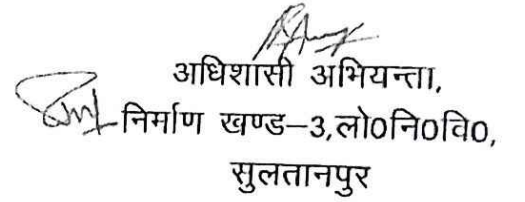 अधिशासी अभियन्ता,
निर्माण खण्ड–3,लो0नि0वि0,
सुलतानपुर